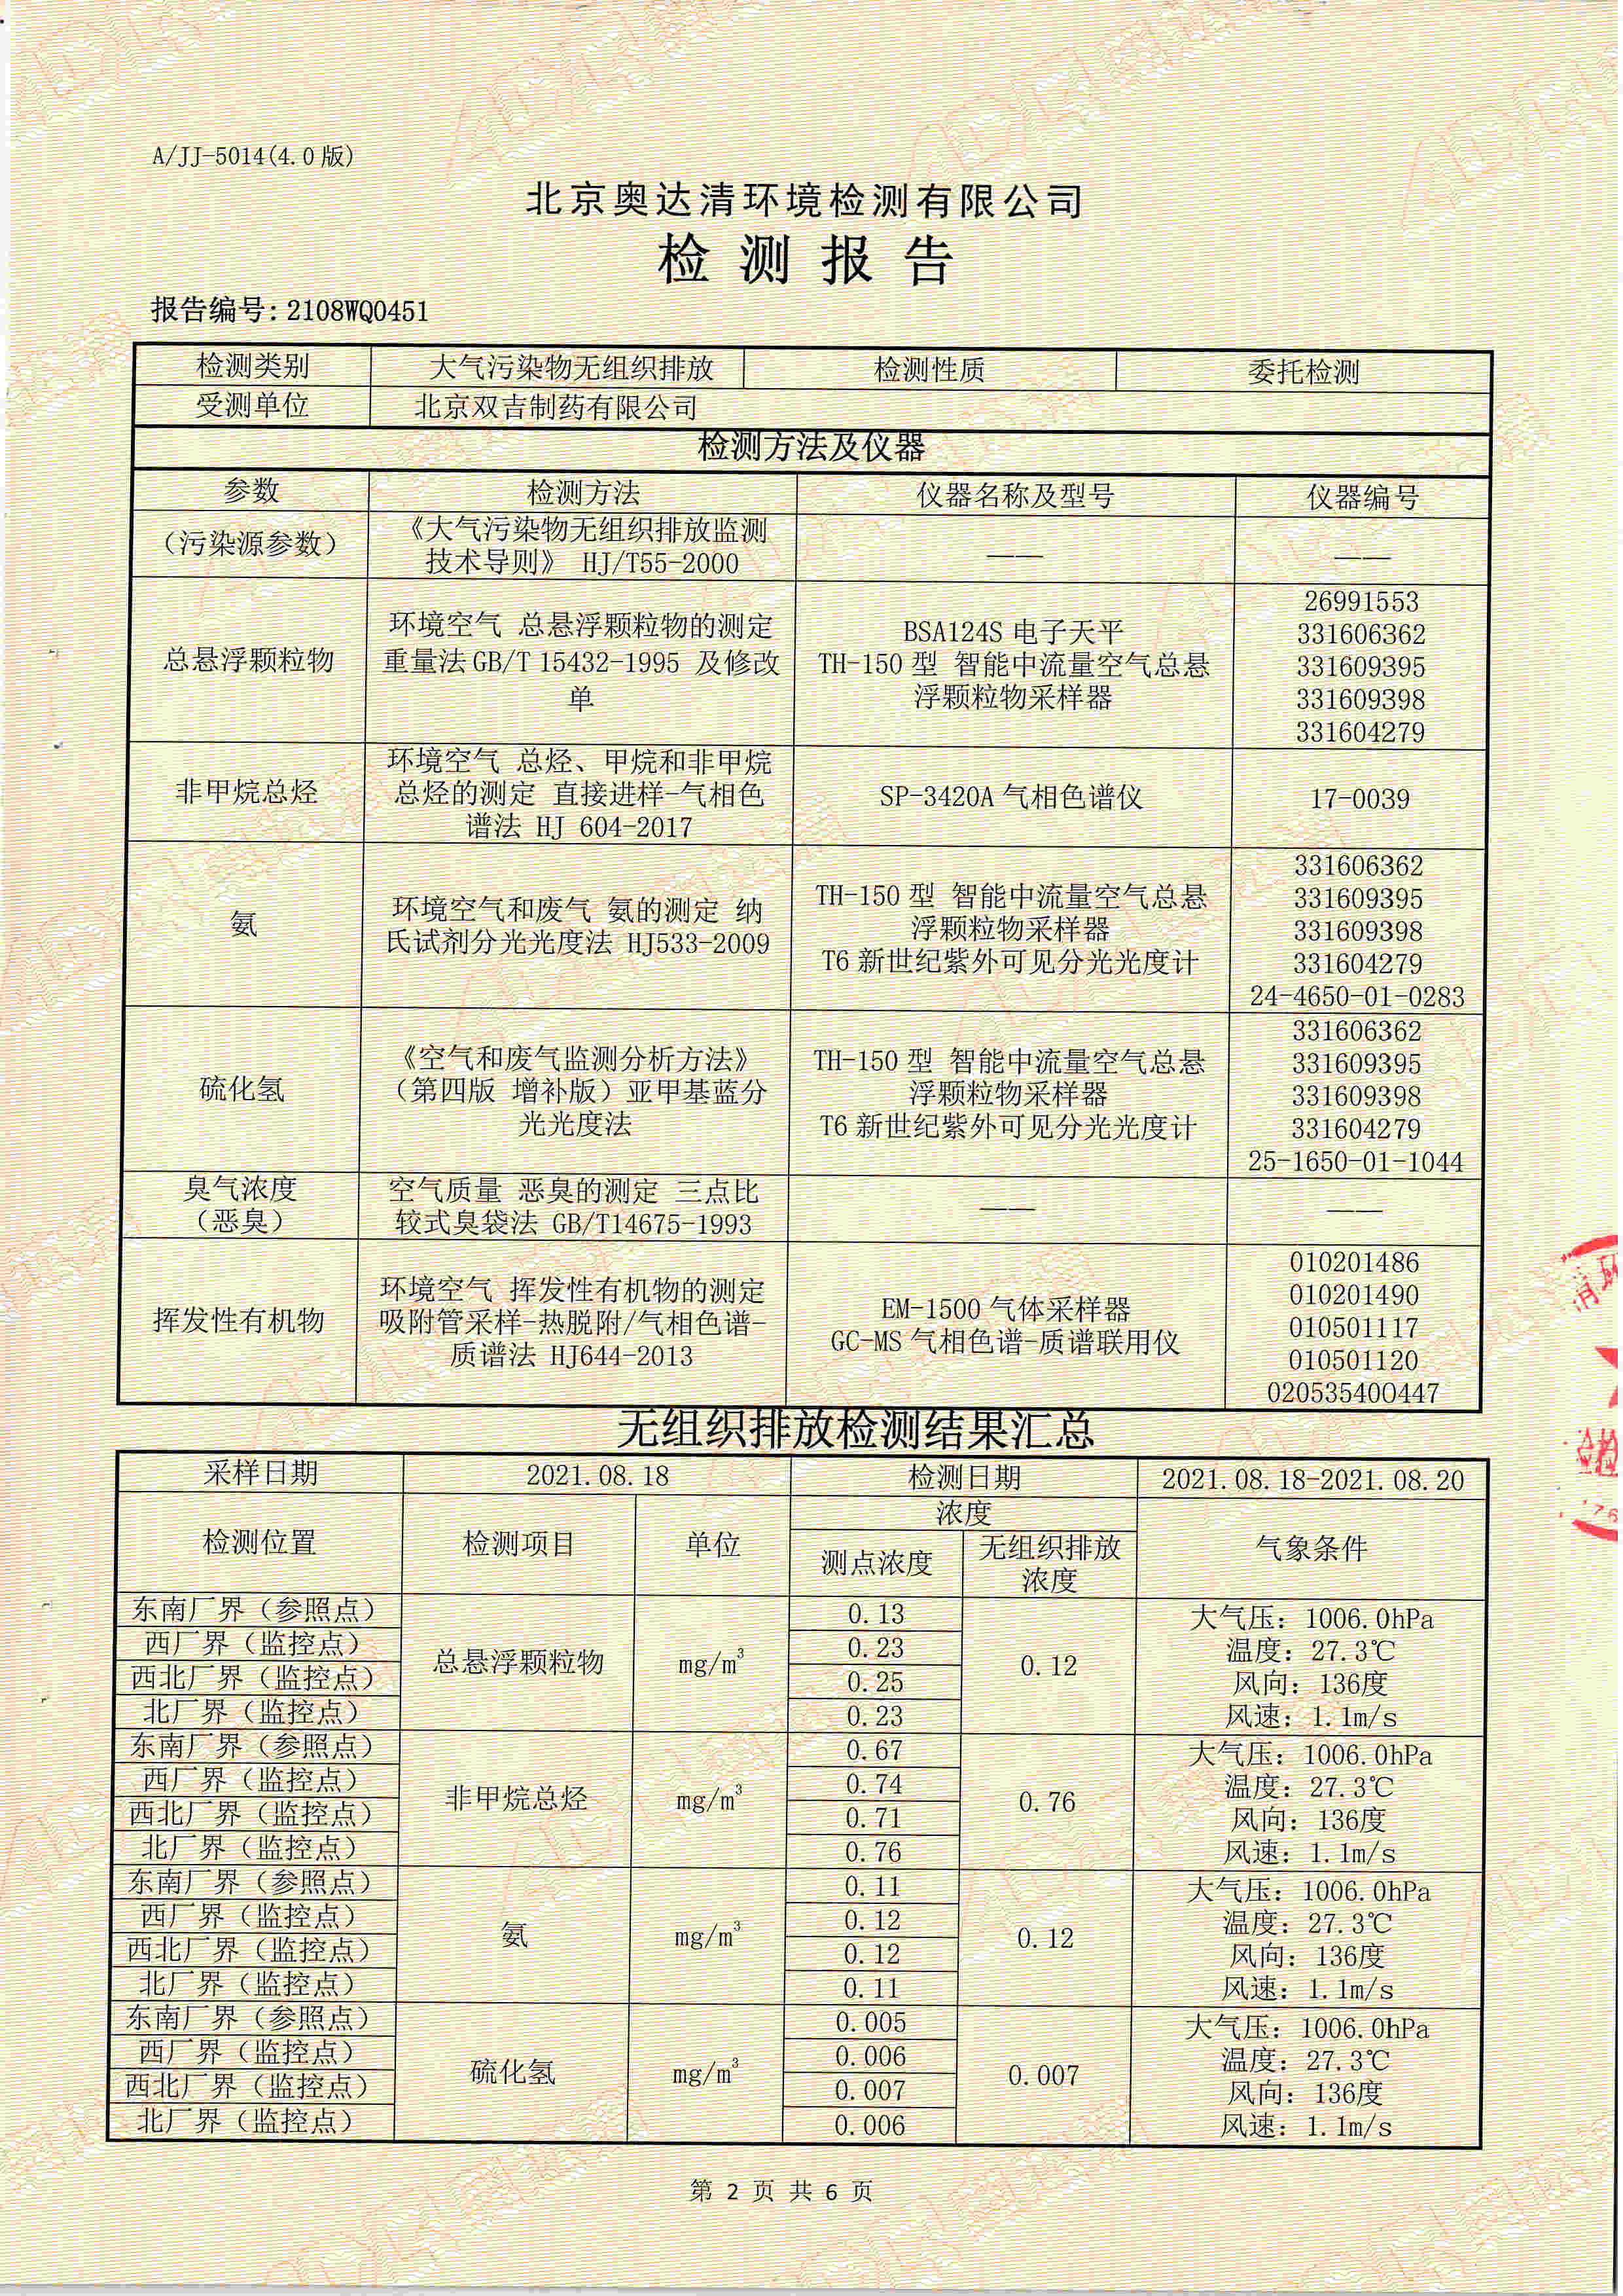 A/JJ-5014(4.0版)
北京奥达清环境检测有限公司
检 测 报 告
报告编号: 2108WQ0451
检测类别 大气污染物无组织排放 检测性质 委托检测
受测单位 北京双吉制药有限公司
检测方法及仪器
参数 检测方法 仪器名称及型号 仪器编号
（污染源参数）
《大气污染物无组织排放监测
技术导则》 HJ/T55-2000
—— ——
总悬浮颗粒物
环境空气 总悬浮颗粒物的测定
重量法GB/T 15432-1995 及修改
单
BSA124S 电子天平
TH-150 型 智能中流量空气总悬
浮颗粒物采样器
26991553
331606362
331609395
331609398
331604279
非甲烷总烃
环境空气 总烃、甲烷和非甲烷
总烃的测定 直接进样-气相色
谱法 HJ 604-2017
SP-3420A 气相色谱仪
17-0039
氨
环境空气和废气 氨的测定 纳
氏试剂分光光度法 HJ533-2009
TH-150 型 智能中流量空气总悬
浮颗粒物采样器
T6 新世纪紫外可见分光光度计
331606362
331609395
331609398
331604279
24-4650-01-0283
硫化氢
《空气和废气监测分析方法》
（第四版 增补版）亚甲基蓝分
光光度法
TH-150 型 智能中流量空气总悬
浮颗粒物采样器
T6 新世纪紫外可见分光光度计
331606362
331609395
331609398
331604279
25-1650-01-1044
臭气浓度
（恶臭）
空气质量 恶臭的测定 三点比
较式臭袋法 GB/T14675-1993
—— ——
挥发性有机物
环境空气 挥发性有机物的测定
吸附管采样-热脱附/气相色谱-
质谱法 HJ644-2013
EM-1500 气体采样器
GC-MS 气相色谱-质谱联用仪
010201486
010201490
010501117
010501120
020535400447
无组织排放检测结果汇总
采样日期 2021.08.18 检测日期 2021.08.18-2021.08.20
检测位置 检测项目 单位 浓度 气象条件
测点浓度 无组织排放
浓度
东南厂界（参照点） 0.13
西厂界（监控点） 0.23
西北厂界（监控点） 0.25
北厂界（监控点） 0.23
总悬浮颗粒物 mg/m³ 0.12
大气压: 1006.0hPa
温度: 27.3℃
风向: 136度
风速: 1.1m/s
东南厂界（参照点） 0.67
西厂界（监控点） 0.74
西北厂界（监控点） 0.71
北厂界（监控点） 0.76
非甲烷总烃 mg/m³ 0.76
大气压: 1006.0hPa
温度: 27.3℃
风向: 136度
风速: 1.1m/s
东南厂界（参照点） 0.11
西厂界（监控点） 0.12
西北厂界（监控点） 0.12
北厂界（监控点） 0.11
氨 mg/m³ 0.12
大气压: 1006.0hPa
温度: 27.3℃
风向: 136度
风速: 1.1m/s
东南厂界（参照点） 0.005
西厂界（监控点） 0.006
西北厂界（监控点） 0.007
北厂界（监控点） 0.006
硫化氢 mg/m³ 0.007
大气压: 1006.0hPa
温度: 27.3℃
风向: 136度
风速: 1.1m/s
第 2 页 共 6 页